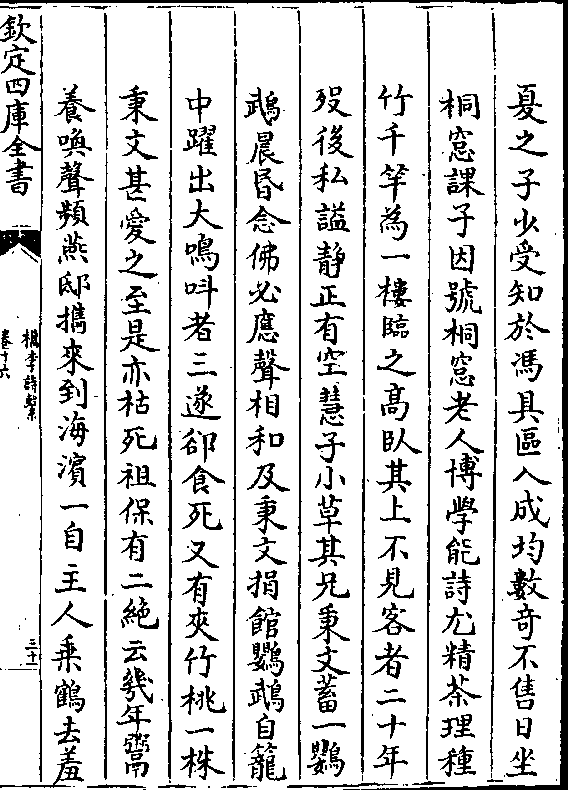 夏之子少受知於馮具區入成均數奇不售日坐
桐窓課子因號桐窓老人博學能詩尤精茶理種
竹千竿為一樓臨之髙卧其上不見客者二十年
歿後私諡静正有空慧子小草其兄秉文蓄一鸚
鵡晨昏念佛必應聲相和及秉文捐館鸚鵡自籠
中躍出大鳴呌者三遂卻食死又有夾竹桃一株
秉文甚愛之至是亦枯死祖保有二絶云幾年鬻
養喚聲頻燕邸攜來到海濱一自主人乗鶴去羞
欽定四庫全書
檇李詩繫
卷十六
三十